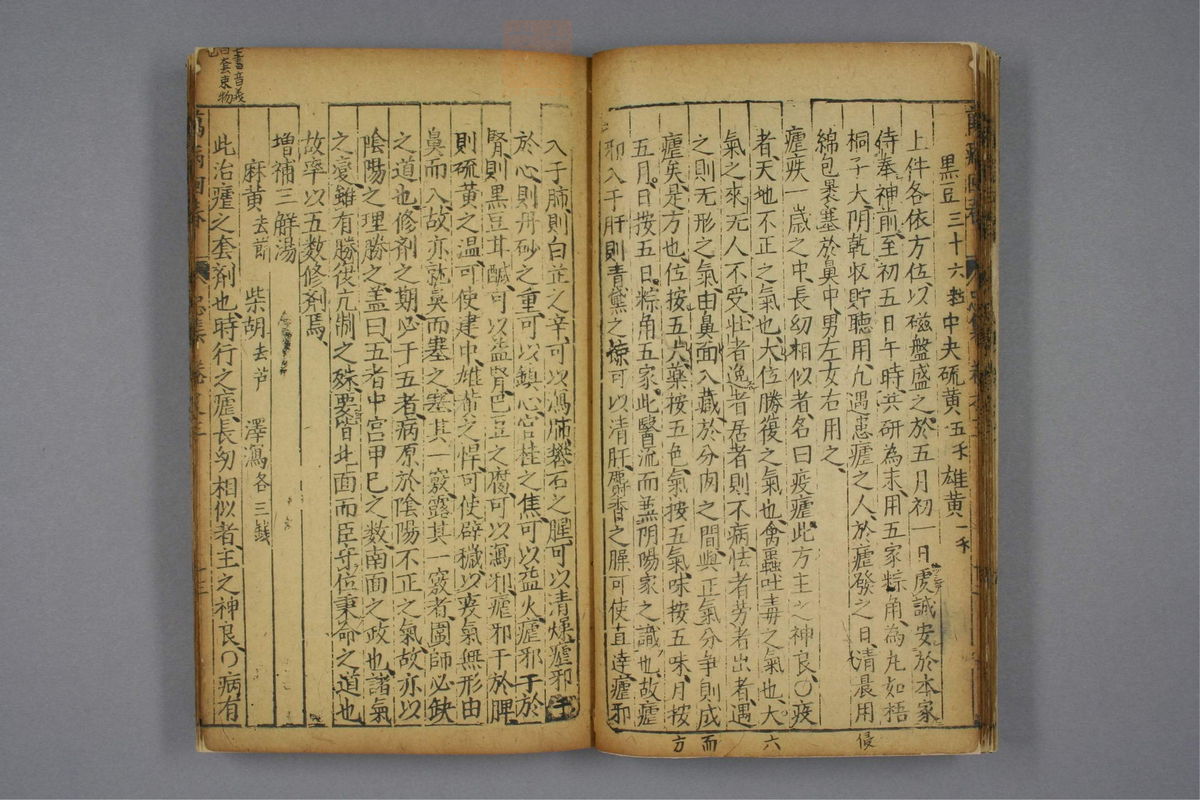 黑豆三十六粒中央硫黄五錢雄黄一錢
上件各依方位以磁盤盛之於五月初一日虔誠安於本家
侍奉神前至初五日午時共研為末用五家粽角為丸如梧
桐子大阴乾収貯聴用凢遇患瘧之人於瘧發之日清晨用
綿包裹塞於鼻中男左女右用之
瘧疾一歳之中長幼相似者名曰疫瘧此方主之神良〇疫
者天地不正之氣也六位勝復之氣也禽蟲吐毒之氣也大
氣之來无人不受壮者逸者居者則不病怯者劳者出者遇
之則无形之氣由鼻面入藏於分肉之間與正氣分争則成
瘧矣是方也位按五方藥按五色氣按五氣味按五味月按
五月日按五日粽角五家此醫流而兼阴陽家之識也故瘧
邪入于肝則青黛之凉可以清肝麝香之臊可使直達瘧邪
侵
六
而
方
入于肺則白芷之辛可以瀉肺礬石之腥可以清燥瘧邪干
於心則丹砂之重可以鎮心官桂之焦可以益火瘧邪于於
腎則黑豆茸醎可以益腎巴豆之腐可以瀉邪瘧邪干於脾
則硫黄之温可使建中雄黄之悍可使辟穢以疫氣無形由
鼻而入故亦就鼻而塞之塞其一竅露其一竅者圍師必缺
之道也修剤之期必于五者病原於陰陽不正之氣故亦以
陰陽之理勝之盖曰五者中宫甲巳之数南面之政也諸氣
之衰雖有勝復亢制之殊要皆北面而臣守位秉命之道也
故寧以五数修剤焉
增補三解湯
麻黄去節 柴胡去芦 澤瀉各三錢
此治瘧之套剤也時行之瘧長幼相似者主之神良〇病有
套束物